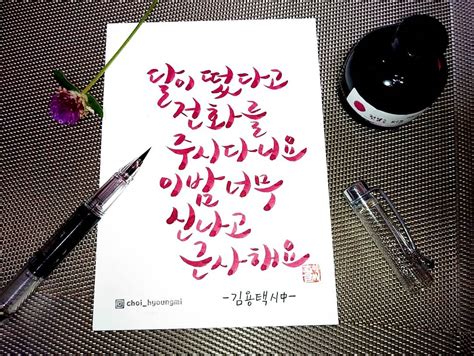 달이 떴다고
전화를
주시다니요
이밤 너무
신나고
근사해요
-김용택 시中-
choi_hyoungmi